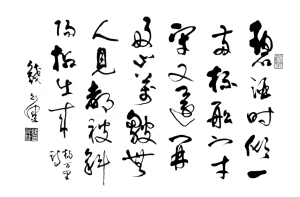 碧酒时倾一
两杯船门才
闭又还开
好山萬皺無
人見都被斜
阳拈出来
杨万里
诗